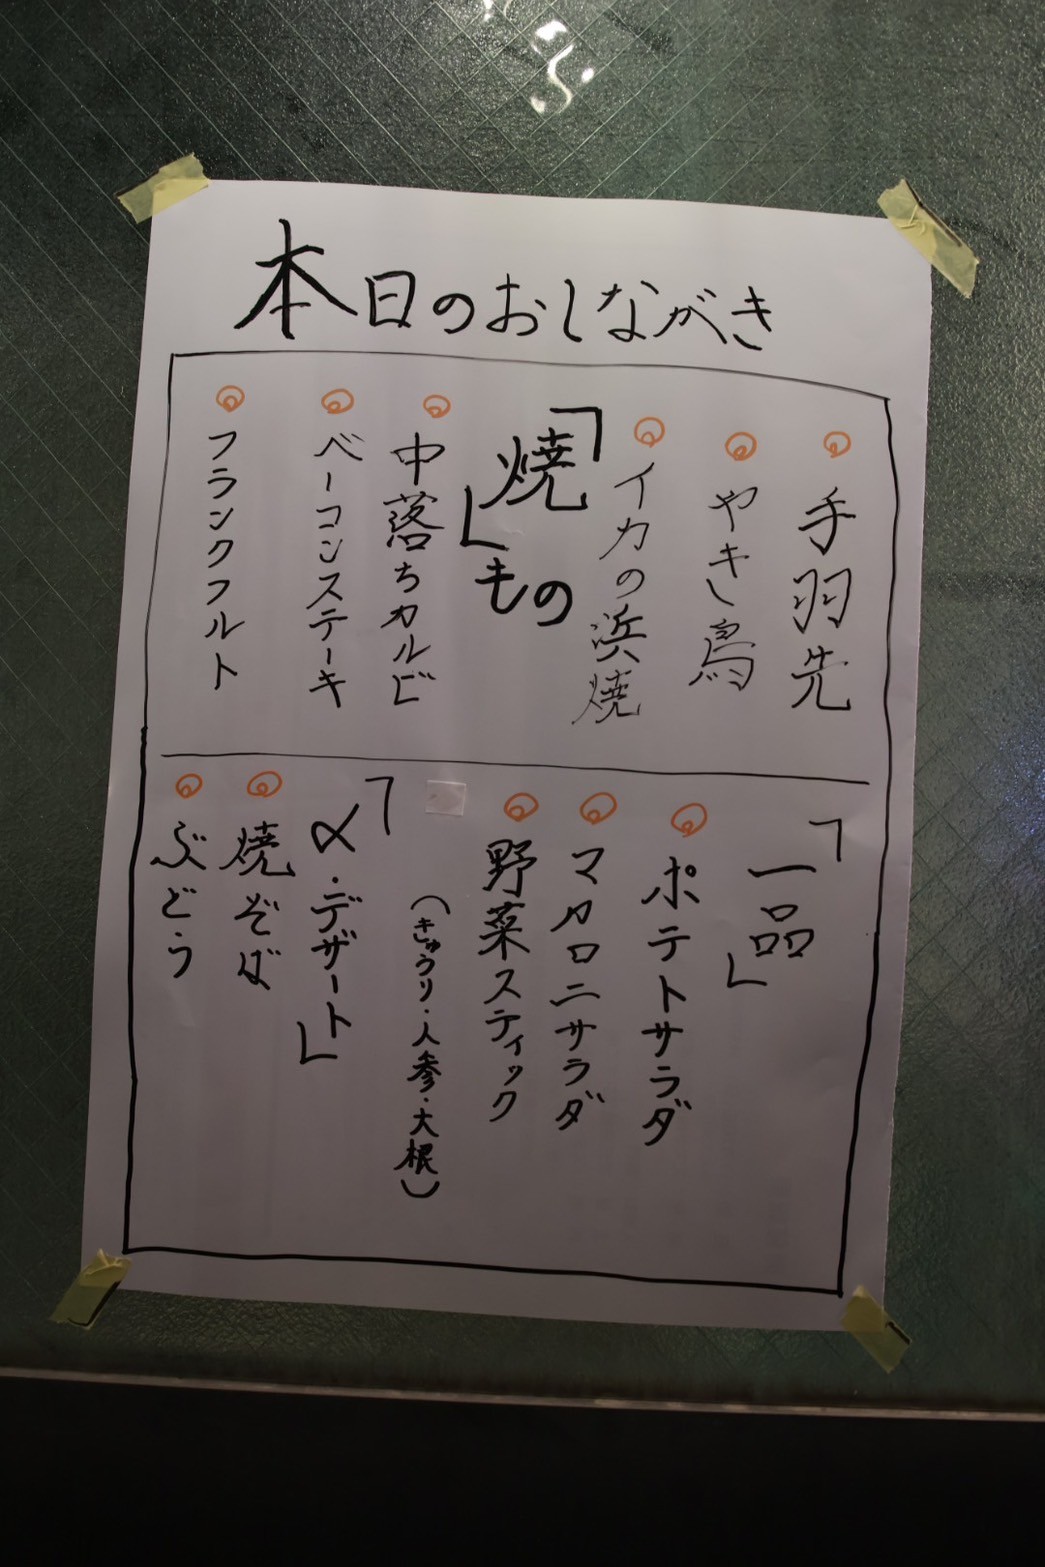 本日のおしながき
手羽先
やき鳥
イカの浜焼
「焼」もの
中落ちカルビ
ベーコンステーキ
フランクフルト
「一品」
ポテトサラダ
マカロニサラダ
野菜スティック
(きゅうり・人参・大根)
「〆・デザート」
焼そば
ぶどう